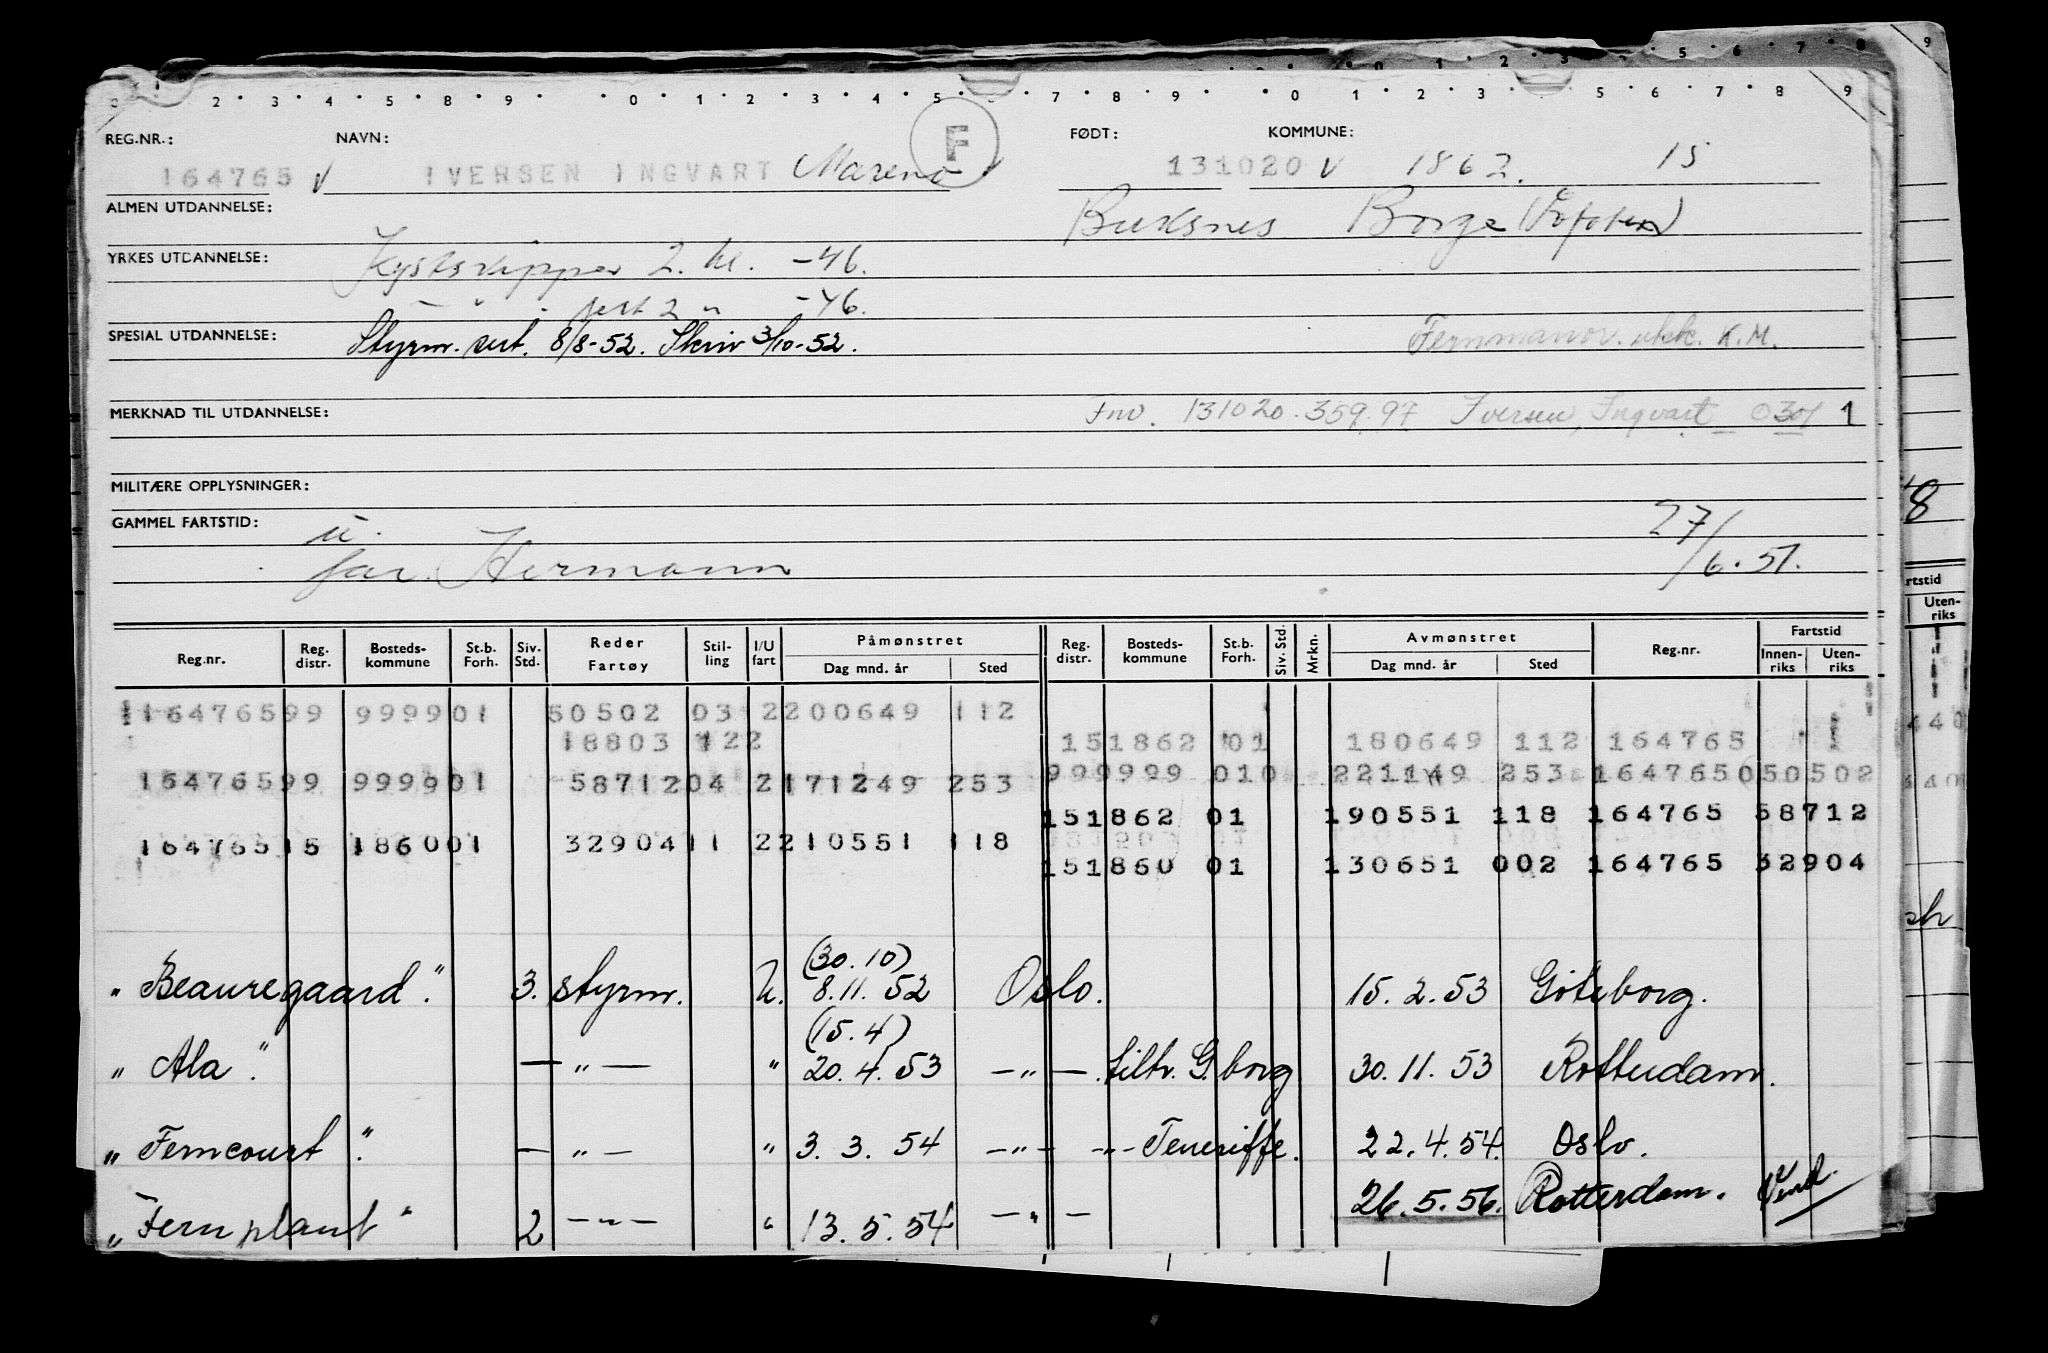 REG.NR.: NAVN: F FØDT: KOMMUNE:
164765 V IVERSEN INGVART Mareno 131020 V 1862. 15
ALMEN UTDANNELSE: Buksnes Borge (Lofoten)
YRKES UTDANNELSE: Kystskipper 2. kl. -46.
- " - sert 2 " -46.
SPESIAL UTDANNELSE: Styrm. sert. 8/8-52. Skriv 3/10-52. Fernmanor. K.M.
MERKNAD TIL UTDANNELSE: Fnr. 131020.359.97 Iversen, Ingvart 0301 1
MILITÆRE OPPLYSNINGER:
GAMMEL FARTSTID: u. 27/6.51.
far. Hermann
Reg.nr. Reg. distr. Bosteds-kommune St.b. Forh. Siv. Std. Reder Fartøy Stil-ling I/U fart Påmønstret Dag mnd. år Sted Reg. distr. Bosteds-kommune St.b. Forh. Siv. Std. Mrkn. Avmønstret Dag mnd. år Sted Reg.nr. Fartstid Innen-riks Uten-riks
16476599 999901 50502 03 2200649 112
18803 122 151862 01 180649 112 164765
16476599 999901 58712 04 2171249 253 999999 010 221149 253 164765 050502
151862 01 190551 118 164765 58712
16476515 186001 32904 11 2210551 118
151860 01 130651 002 164765 32904
(30.10)
"Beauregaard". 3. styrm. U. 8.11.52 Oslo. 15.2.53 Göteborg.
(15.4)
"Ala". - " - " 20.4.53 - " - tiltr. G.borg 30.11.53 Rotterdam.
"Ferncourt". - " - " 3.3.54 - " - - " - Teneriffe. 22.4.54. Oslo.
"Fernplant" 2 - " - " 13.5.54 - " - 26.5.56. Rotterdam. Vend.